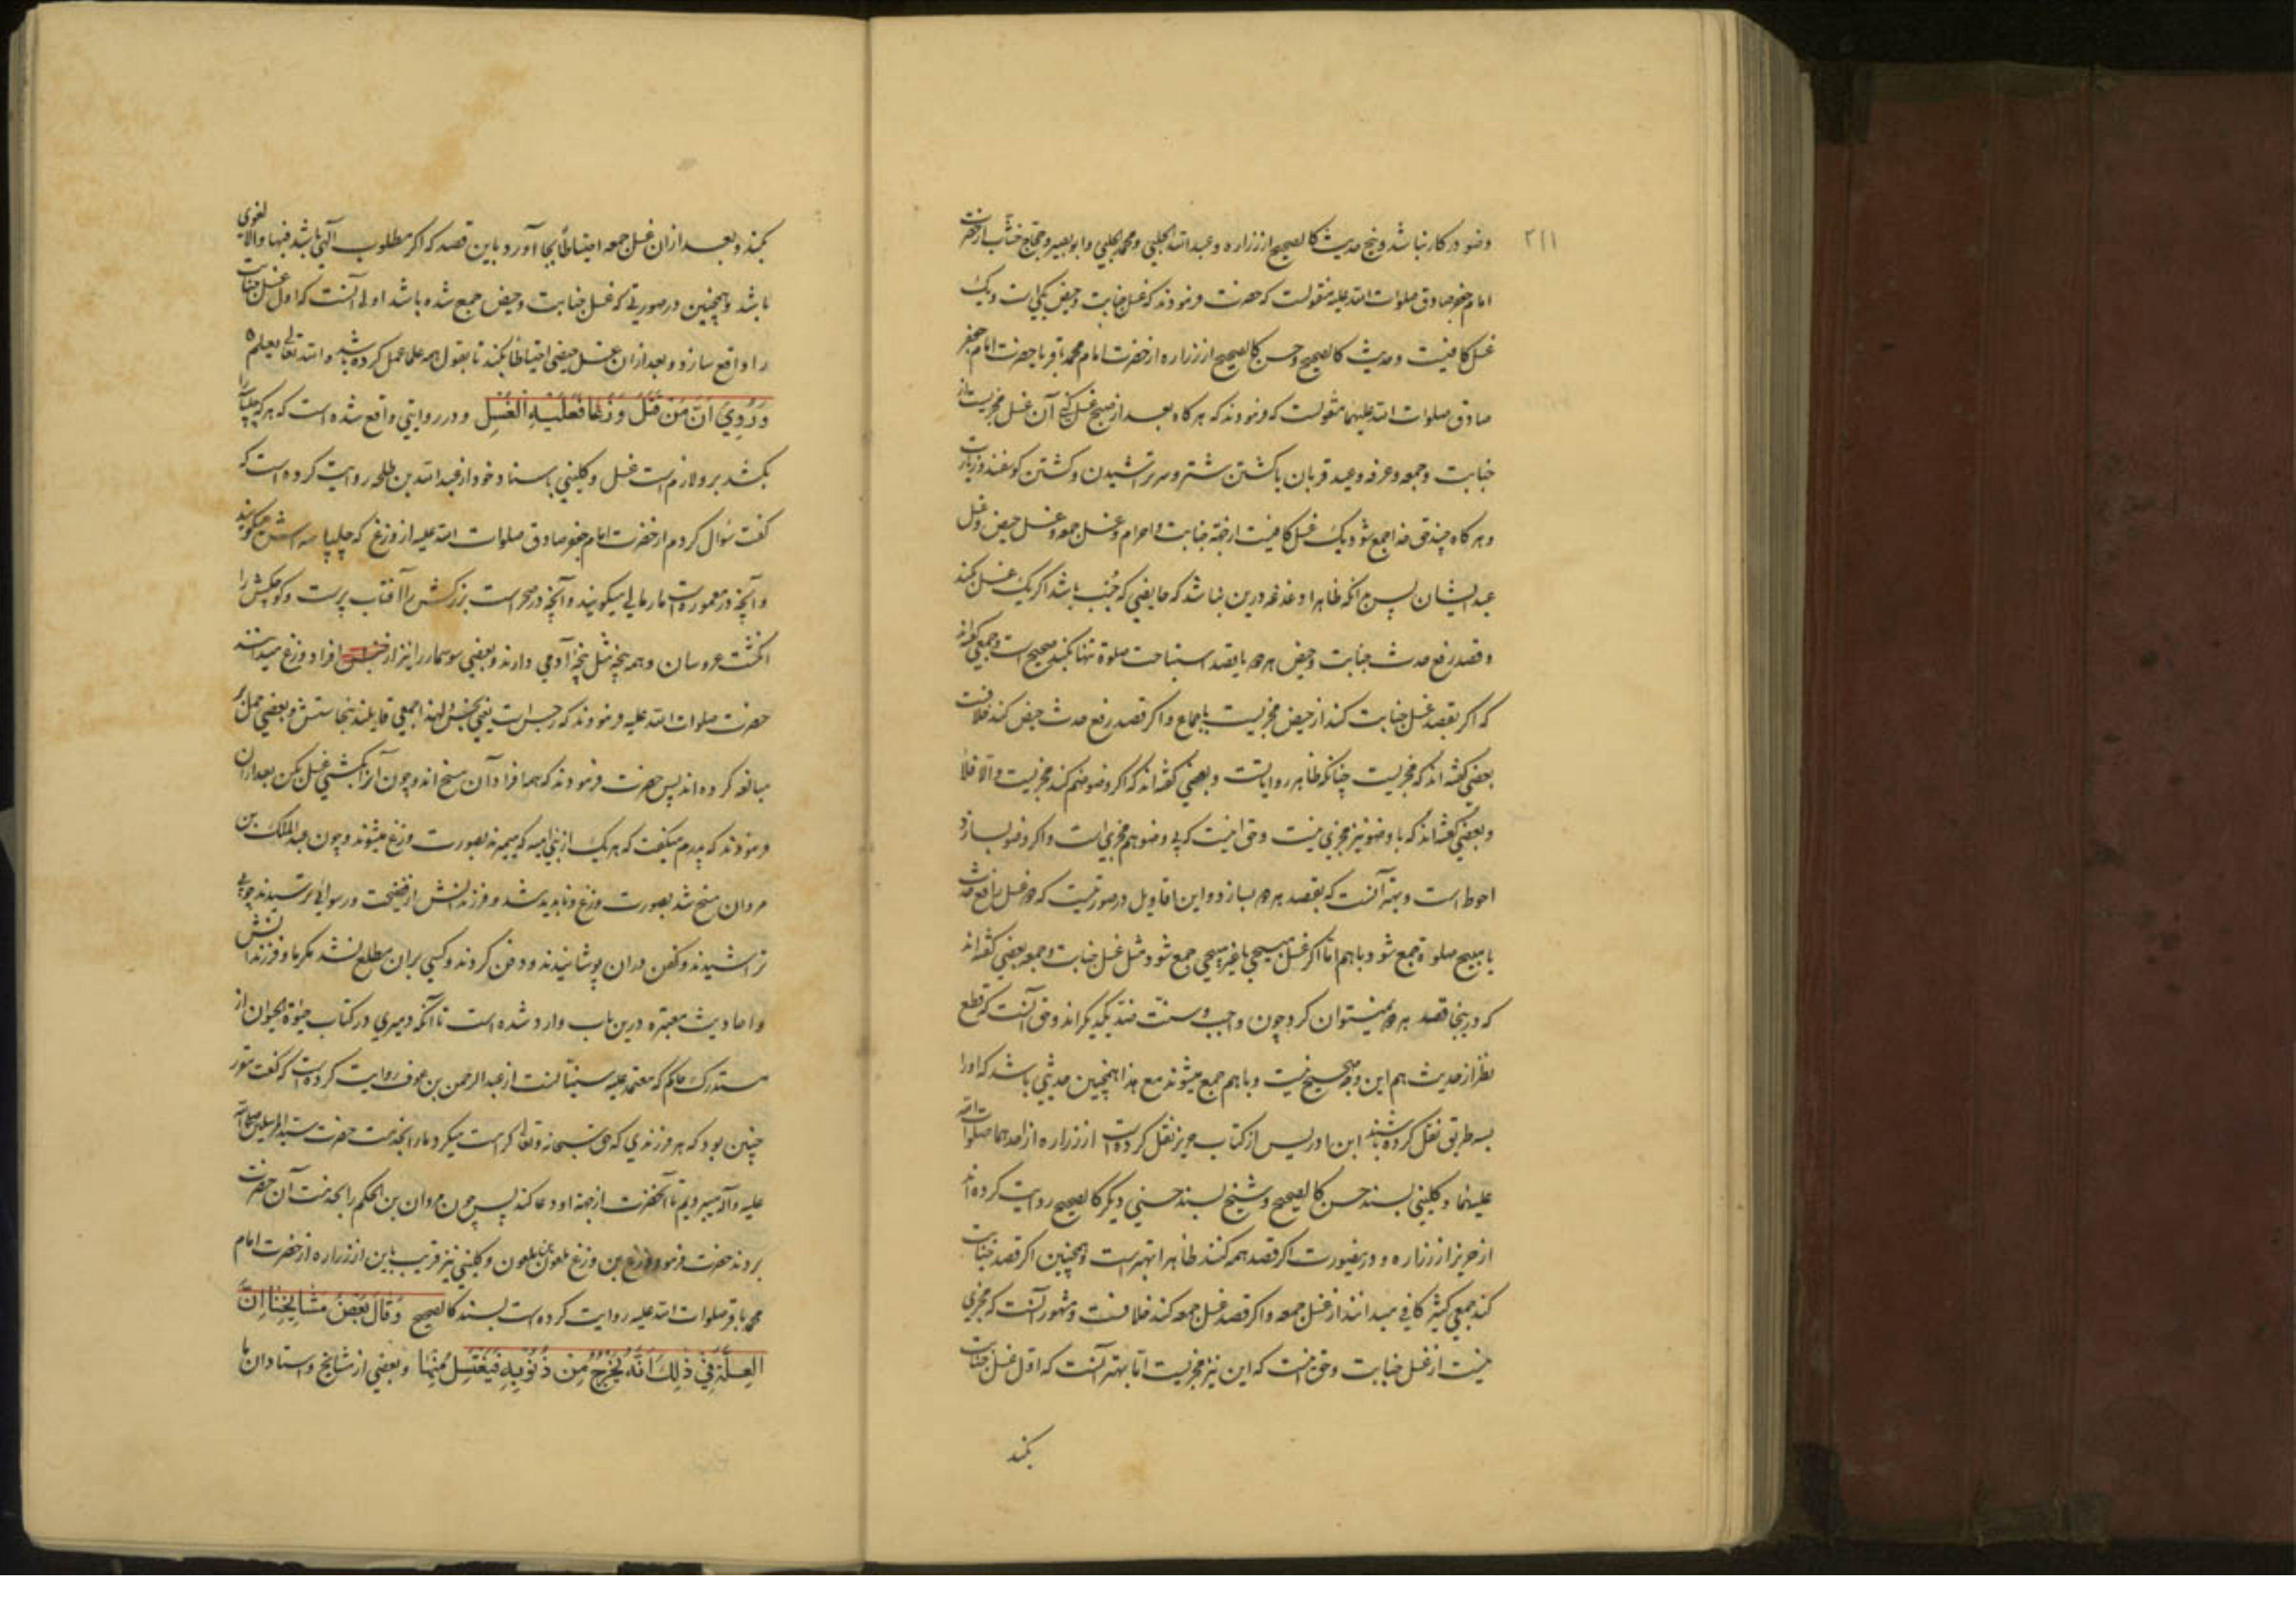 ۲۱۱
وضو در کار نباشد و پنج حدیث کالصحیح از زراره و عبدالله حلبی و محمد حلبی و ابو بصیر و حجاج خشاب از حضرت
امام جعفر صادق صلوات الله علیه منقولست که حضرت فرمودند که غسل جنابت و حیض یکی است و یک
غسل کافیست و حدیث کالصحیح و حسن کالصحیح از زراره از حضرت امام محمد باقر یا حضرت امام جعفر
صادق صلوات الله علیهما منقولست که فرمودند که هر کاه بعد از صبح غسل کنی آن غسل مجزیست از
جنابت و جمعه و عرفه و عید قربان یا کشتن شتر و سر تراشیدن و کشتن کوسفند و زیارت
و هر کاه چند حق خدا جمع شود یک غسل کافیست از جهة جنابت و احرام و غسل جمعه و غسل حیض و غسل
عید ایشان پس بدانکه ظاهرا دغدغه درین نباشد که حایضی که جنب باشد اکر یک غسل بکند
و قصد رفع حدث جنابت و حیض هر دو یا بقصد استباحت صلوة تنها بکند صحیح است و جمعی کفته‌اند
که اکر بقصد غسل جنابت کند از حیض مجزیست باجماع و اکر قصد رفع حدث حیض کند خلافست
بعضی کفته‌اند که مجزیست چنانکه ظاهر روایاتست و بعضی کفته‌اند که اکر وضو ضم کند مجزیست و الا فلا
و بعضی کفته‌اند که با وضو نیز مجزی نیست و حق اینست که بی وضو هم مجزی است و اکر وضو بسازد
احوط است و بهتر آنست که بقصد هر دو بسازد و این اقاویل در صورتیست که دو غسل رافع حدث
یا مبیح صلوة جمع شود با هم اما اکر غسل مبیحی با غیر مبیحی جمع شود مثل غسل جنابت و جمعه بعضی کفته‌اند
که درینجا قصد هر دو نمیتوان کرد چون واجب و سنت ضد یکدیکراند و حق آنست که قطع
نظر از حدیث هم این وجه صحیح نیست و با هم جمع میشوند مع هذا همچنین حدیثی باشد که او را
بسه طریق نقل کرده باشند ابن ادریس از کتاب حریز نقل کرده است از زراره از احدهما صلوات الله
علیهما و کلینی بسند حسن کالصحیح و شیخ بسند حسنی دیکر کالصحیح روایت کرده‌اند
از حریز از زراره و درینصورت اکر قصد همه کنند ظاهرا بهتر است و همچنین اکر قصد جنابت
کند جمعی کثیر کافی میدانند از غسل جمعه و اکر قصد غسل جمعه کند خلافست و مشهور آنست که مجزی
نیست از غسل جنابت و حق اینست که این نیز مجزیست اما بهتر آنست که اول غسل جنابت
بکند
بکند و بعد از ان غسل جمعه احتیاطاً بجا آورد باین قصد که اکر مطلوب الهی باشد فبها والا لغوی
باشد و همچنین در صورتی که غسل جنابت و حیض جمع شده باشد اولی آنست که اول غسل جنابت
را واقع سازد و بعد از ان غسل حیضی احتیاطا بکند تا بقول همه علما عمل کرده باشد والله تعالی یعلم
وَرُوِيَ أَنَّ مَنْ قَتَلَ وَزَغًا فَعَلَيْهِ الْغُسْل و در روایتی واقع شده است که هر که چلپاسه را
بکشد بر و لازم است غسل و کلینی باسناد خود از عبدالله بن طلحه روایت کرده است که
کفت سؤال کردم از حضرت امام جعفر صادق صلوات الله علیه از وزغ که چلپاسه اش میکویند
و آنچه در معموره است مارمالی میکویند و آنچه در صحراست بزرکش را آفتاب پرست و کوچکش را
انکشت عروسان و همه پنجه مثل پنجه آدمی دارند و بعضی سوسمار را نیز از افراد وزغ میدانند
حضرت صلوات الله علیه فرمودند که رجس است یعنی نجس و لهذا جمعی قایلند بنجاستش و بعضی حمل بر
مبالغه کرده‌اند پس حضرت فرمودند که همه افراد آن مسخ‌اند و چون آنرا بکشتی غسل بکن بعد از ان
فرمودند که پدرم میکفت که هر یک از بنی امیه که میمیرند بصورت وزغ میشوند و چون عبدالملک بن
مروان مسخ شد بصورت وزغ و ناپدید شد و فرزندانش از فضیحت و رسوائی ترسیدند چوبی
تراشیدند و کفن در ان پوشانیدند و دفن کردند و کسی بران مطلع نشد مکر ما و فرزندانش
و احادیث معتبره درین باب وارد شده است تا آنکه دمیری در کتاب حیوة الحیوان از
مستدرک حاکم که معتمد علیه سنیانست از عبدالرحمن بن عوف روایت کرده است که کفت مقرر
چنین بود که هر فرزندی که حق سبحانه و تعالی کرامت میکرد ما را بخدمت حضرت سید المرسلین صلی الله
علیه و آله میبردیم تا آنحضرت از جهة او دعا کند پس چون مروان بن الحکم را بخدمت آن حضرت
بردند حضرت فرمود وزغ بن وزغ ملعون بن ملعون و کلینی نیز قریب باین از زراره از حضرت امام
محمد باقر صلوات الله علیه روایت کرده است بسند کالصحیح وَقَالَ بَعْضُ مَشَايِخِنَا إِنَّ
الْعِلَّةَ فِي ذٰلِكَ أَنَّهُ يَخْرُجُ مِنْ ذُنُوبِهِ فَيَغْتَسِلُ مِنْهَا و بعضی از مشایخ و استادان ما